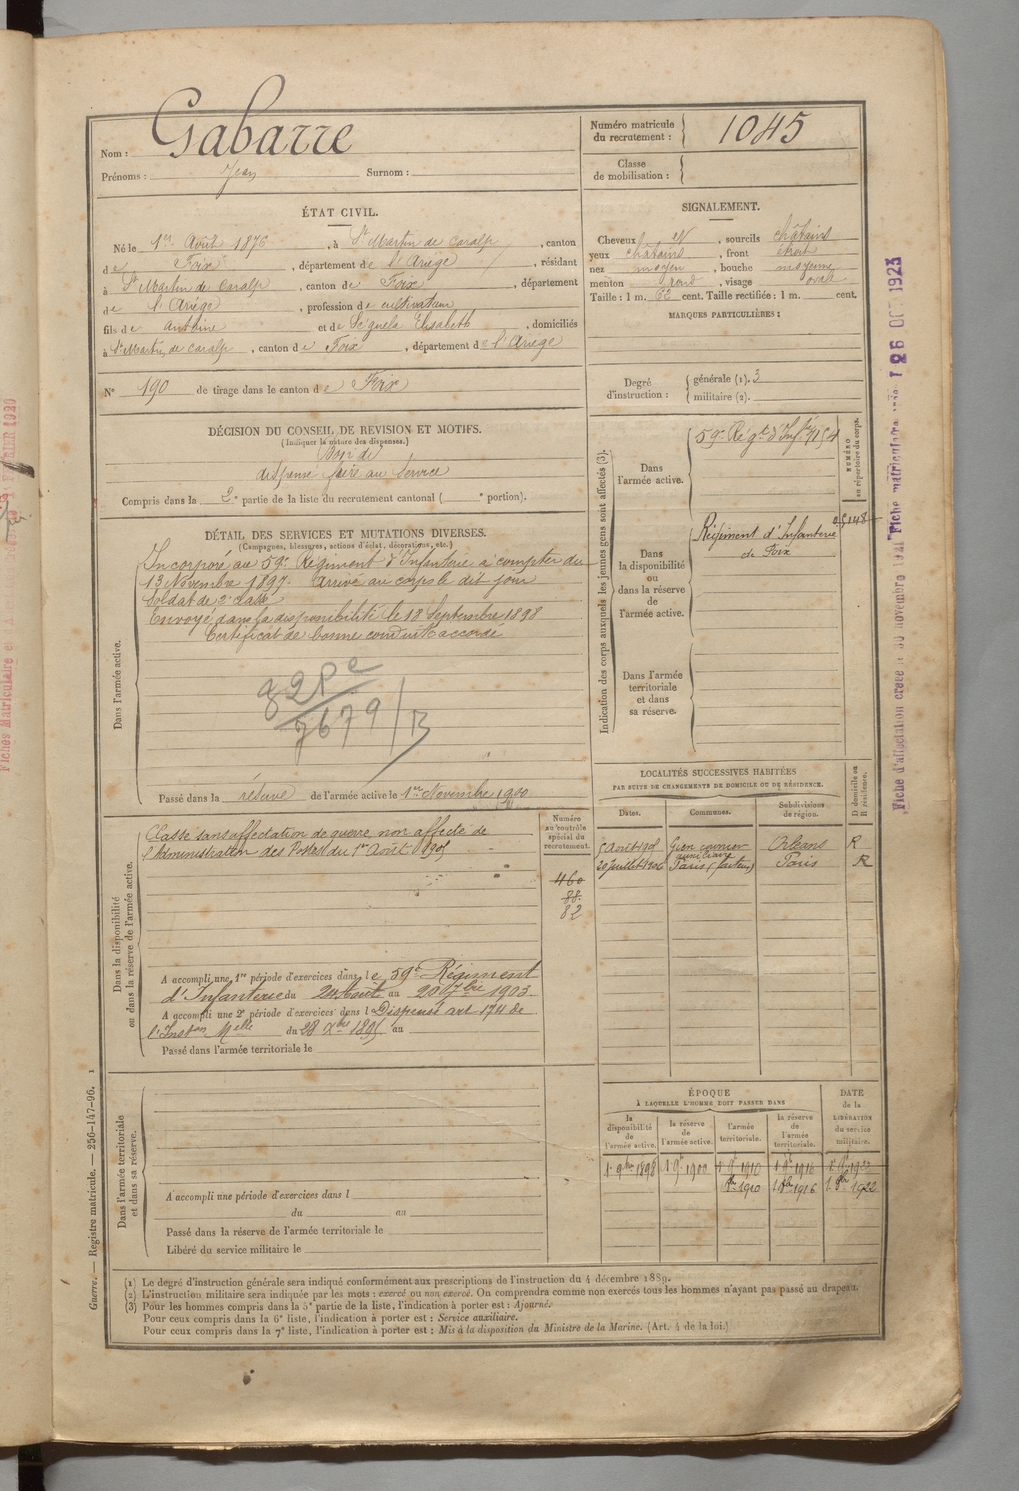 Nom : Gabarre
Prénoms : Jean Surnom :
Numéro matricule du recrutement : 1045
Classe de mobilisation :
ÉTAT CIVIL.
Né le 1er Août 1876, à St Martin de Caralp, canton
de Foix, département de l'Ariège, résidant
à St Martin de Caralp, canton de Foix, département
de l'Ariège, profession de cultivateur
fils de Antoine et de Séguéla Elisabeth, domiciliés
à St Martin de Caralp, canton de Foix, département de l'Ariège
N° 190 de tirage dans le canton de Foix
SIGNALEMENT.
Cheveux et, sourcils châtains
yeux châtains, front étroit
nez moyen, bouche moyenne
menton rond, visage ovale
Taille : 1 m. 62 cent. Taille rectifiée : 1 m. cent.
MARQUES PARTICULIÈRES :
Degré d'instruction : générale (1). 3
militaire (2).
DÉCISION DU CONSEIL DE REVISION ET MOTIFS.
(Indiquer la nature des dispenses.)
Bon
dispensé frère au service
Compris dans la 2e partie de la liste du recrutement cantonal ( e portion).
DÉTAIL DES SERVICES ET MUTATIONS DIVERSES.
(Campagnes, blessures, actions d'éclat, décorations, etc.)
Dans l'armée active.
Incorporé au 59e Régiment d'Infanterie à compter du
13 Novembre 1897. Arrivé au corps le dit jour
Soldat de 2e classe
Envoyé dans la disponibilité le 18 Septembre 1898
Certificat de bonne conduite accordé
7679/B
Passé dans la réserve de l'armée active le 1er Novembre 1900
Indication des corps auxquels les jeunes gens sont affectés (3).
NUMÉRO au répertoire du corps.
Dans l'armée active.
59e Régt d'Infie
Dans la disponibilité ou dans la réserve de l'armée active.
Régiment d'Infanterie
de Foix
Dans l'armée territoriale et dans sa réserve.
LOCALITÉS SUCCESSIVES HABITÉES
PAR SUITE DE CHANGEMENTS DE DOMICILE OU DE RÉSIDENCE.
Dates. Communes. Subdivisions de région. D domicile ou R résidence.
5 Août 1901 Gien courrier auxiliaire Orléans R
20 Juillet 1906 Paris (facteur) Paris R
Dans la disponibilité ou dans la réserve de l'armée active.
Numéro au contrôle spécial du recrutement.
Classé sans affectation de guerre non affecté de
l'Administration des Postes du 1er Août 1901
460
88.
82
A accompli une 1re période d'exercices dans le 59e Régiment
d'Infanterie du 24 Août au 20 7bre 1903
A accompli une 2e période d'exercices dans l Dispensé art 174 de
l'Inston Melle du 28 Xbre 1895 au
Passé dans l'armée territoriale le
Dans l'armée territoriale et dans sa réserve.
A accompli une période d'exercices dans l
du au
Passé dans la réserve de l'armée territoriale le
Libéré du service militaire le
ÉPOQUE
À LAQUELLE L'HOMME DOIT PASSER DANS
DATE de la LIBÉRATION du service militaire.
la disponibilité de l'armée active. la réserve de l'armée active. l'armée territoriale. la réserve de l'armée territoriale.
1er 9bre 1898 1er 9bre 1900 1er 9bre 1910 1er 9bre 1916 1er 9bre 1922
1910 1916 1922
(1) Le degré d'instruction générale sera indiqué conformément aux prescriptions de l'instruction du 4 décembre 1889.
(2) L'instruction militaire sera indiquée par les mots : exercé ou non exercé. On comprendra comme non exercés tous les hommes n'ayant pas passé au drapeau.
(3) Pour les hommes compris dans la 5e partie de la liste, l'indication à porter est : Ajourné.
Pour ceux compris dans la 6e liste, l'indication à porter est : Service auxiliaire.
Pour ceux compris dans la 7e liste, l'indication à porter est : Mis à la disposition du Ministre de la Marine. (Art. 4 de la loi.)
Guerre. — Registre matricule. — 256-147-96. 1
Fiche d'affectation créée le 30 novembre 1921 Fiche matriculaire